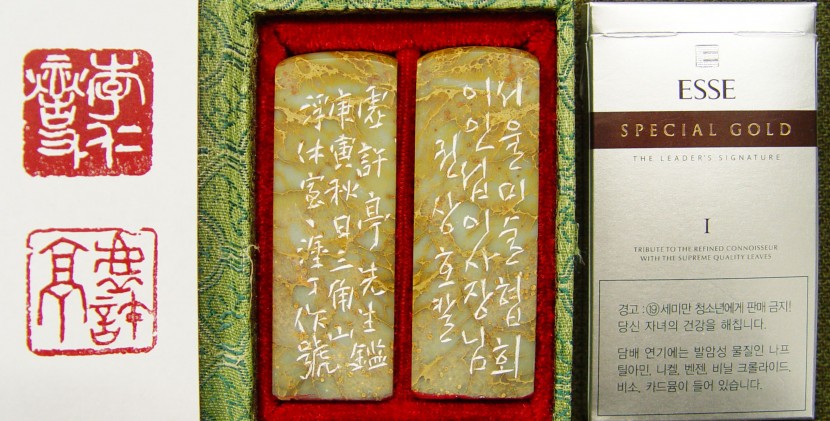 李仁
燮
虛許
亭
虛許亭先生鑑
庚寅秋日三角山
浮休室、塗丁作號
서울미술협회
이인섭이사장님
권상호칼
ESSE
SPECIAL GOLD
THE LEADER'S SIGNATURE
I
TRIBUTE TO THE REFINED CONNOISSEUR
WITH THE SUPREME QUALITY LEAVES
경고 : ⑲세미만 청소년에게 판매 금지!
당신 자녀의 건강을 해칩니다.
담배 연기에는 발암성 물질인 나프
틸아민, 니켈, 벤젠, 비닐 크롤라이드,
비소, 카드뮴이 들어 있습니다.